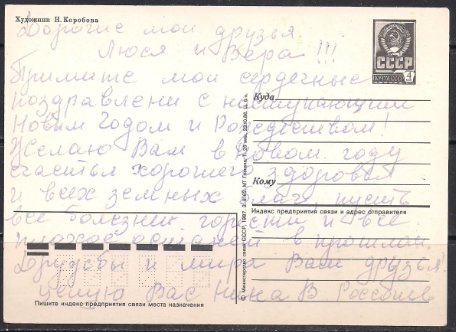 Художник Н. Коробова
Дорогие мои друзья
Люся и Вера!!!
Примите мои сердечные
поздравлени с наступающим
Новым Годом и Рождеством!
Желаю Вам в Новом году
счастья хорошего здоровья
и всех земных благ, пусть
все болезни горести и все
плохое останей в прошлом.
Дружбы и мира Вам друзья!
целую Вас Нина В
СССР
4
Куда
Кому
Индекс предприятия связи и адрес отправителя
Пишите индекс предприятия связи места назначения